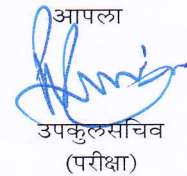 आपला
उपकुलसचिव
(परीक्षा)